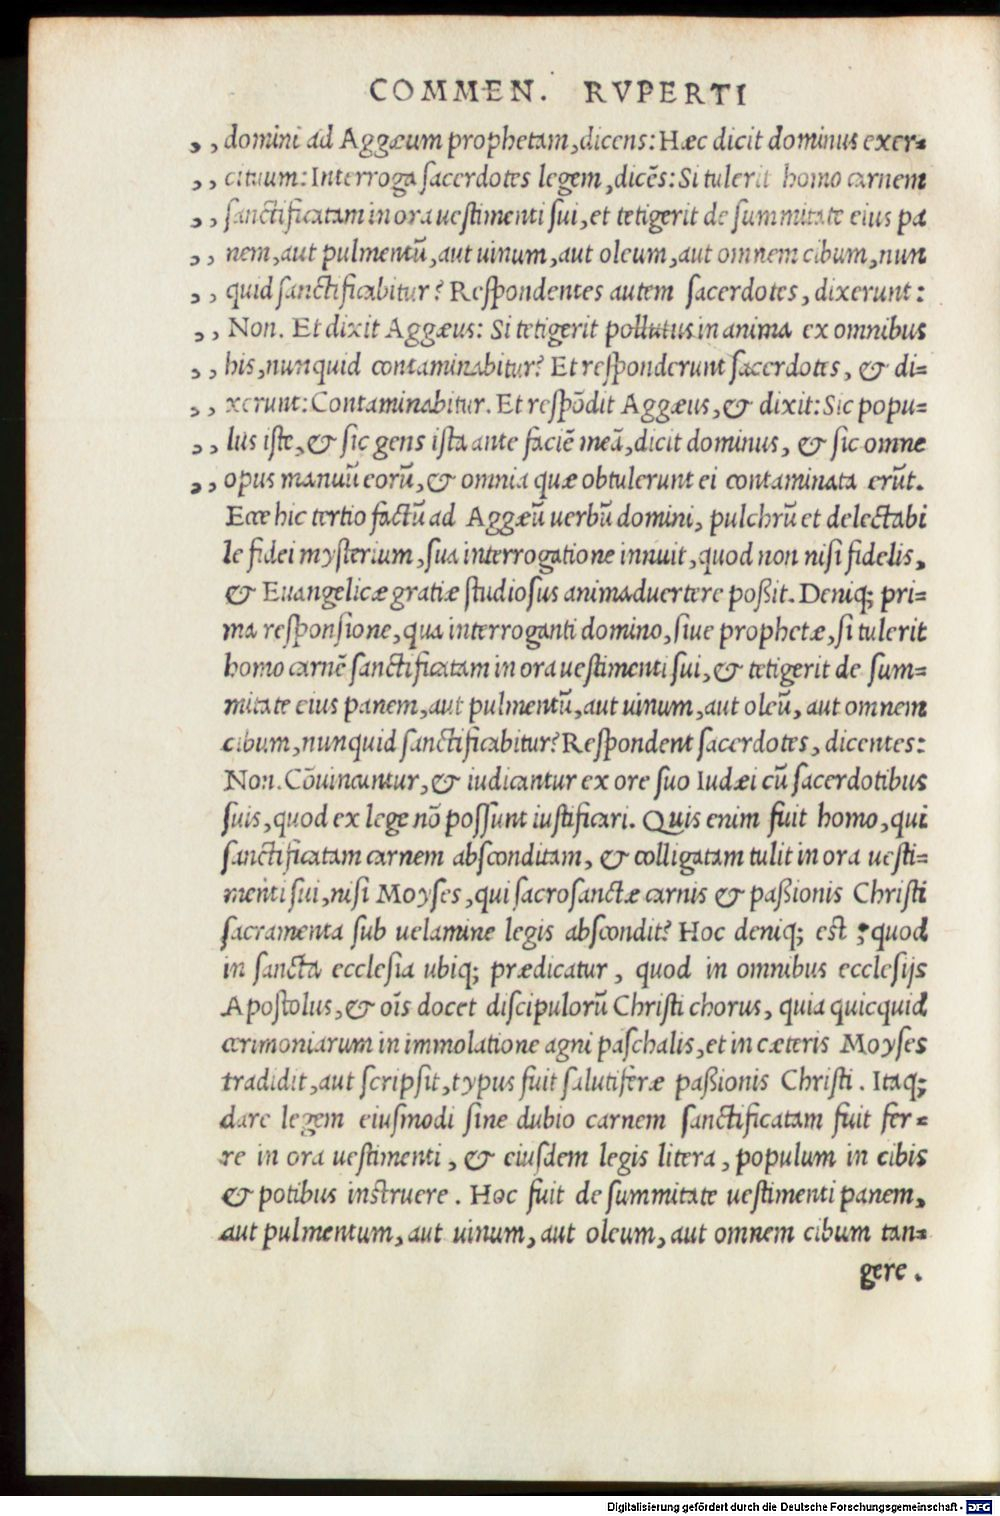 COMMEN. RVPERTI
,, domini ad Aggæum prophetam, dicens: Hæc dicit dominus exer=
,, cituum: Interroga ſacerdotes legem, dicẽs: Si tulerit homo carnem
,, ſanctificatam in ora ueſtimenti ſui, et tetigerit de ſummitate eius pa
,, nem, aut pulmentũ, aut uinum, aut oleum, aut omnem cibum, nun
,, quid ſanctificabitur? Reſpondentes autem ſacerdotes, dixerunt:
,, Non. Et dixit Aggæus: Si tetigerit pollutus in anima ex omnibus
,, his, nunquid contaminabitur? Et reſponderunt ſacerdotes, & di=
,, xerunt: Contaminabitur. Et reſpõdit Aggæus, & dixit: Sic popu=
,, lus iſte, & ſic gens iſta ante faciẽ meã, dicit dominus, & ſic omne
,, opus manuũ eorũ, & omnia quæ obtulerunt ei contaminata erũt.
Ecce hic tertio factũ ad Aggæũ uerbũ domini, pulchrũ et delectabi
le fidei myſterium, ſua interrogatione innuit, quod non niſi fidelis,
& Euangelicæ gratiæ ſtudioſus animaduertere poßit. Deniq; pri=
ma reſponſione, qua interroganti domino, ſiue prophetæ, ſi tulerit
homo carnẽ ſanctificatam in ora ueſtimenti ſui, & tetigerit de ſum=
mitate eius panem, aut pulmentũ, aut uinum, aut oleũ, aut omnem
cibum, nunquid ſanctificabitur? Reſpondent ſacerdotes, dicentes:
Non. Cõuincuntur, & iudicantur ex ore ſuo Iudæi cũ ſacerdotibus
ſuis, quod ex lege nõ poſſunt iuſtificari. Quis enim fuit homo, qui
ſanctificatam carnem abſconditam, & colligatam tulit in ora ueſti=
menti ſui, niſi Moyſes, qui ſacroſanctæ carnis & paßionis Chriſti
ſacramenta ſub uelamine legis abſcondit? Hoc deniq; eſt, quod
in ſancta eccleſia ubiq; prædicatur, quod in omnibus eccleſijs
Apoſtolus, & oĩs docet diſcipulorũ Chriſti chorus, quia quicquid
cerimoniarum in immolatione agni paſchalis, et in cæteris Moyſes
tradidit, aut ſcripſit, typus fuit ſalutiferæ paßionis Chriſti. Itaq;
dare legem eiuſmodi ſine dubio carnem ſanctificatam fuit fer=
re in ora ueſtimenti, & eiuſdem legis litera, populum in cibis
& potibus inſtruere. Hoc fuit de ſummitate ueſtimenti panem,
aut pulmentum, aut uinum, aut oleum, aut omnem cibum tan=
gere.
Digitalisierung gefördert durch die Deutsche Forschungsgemeinschaft - DFG